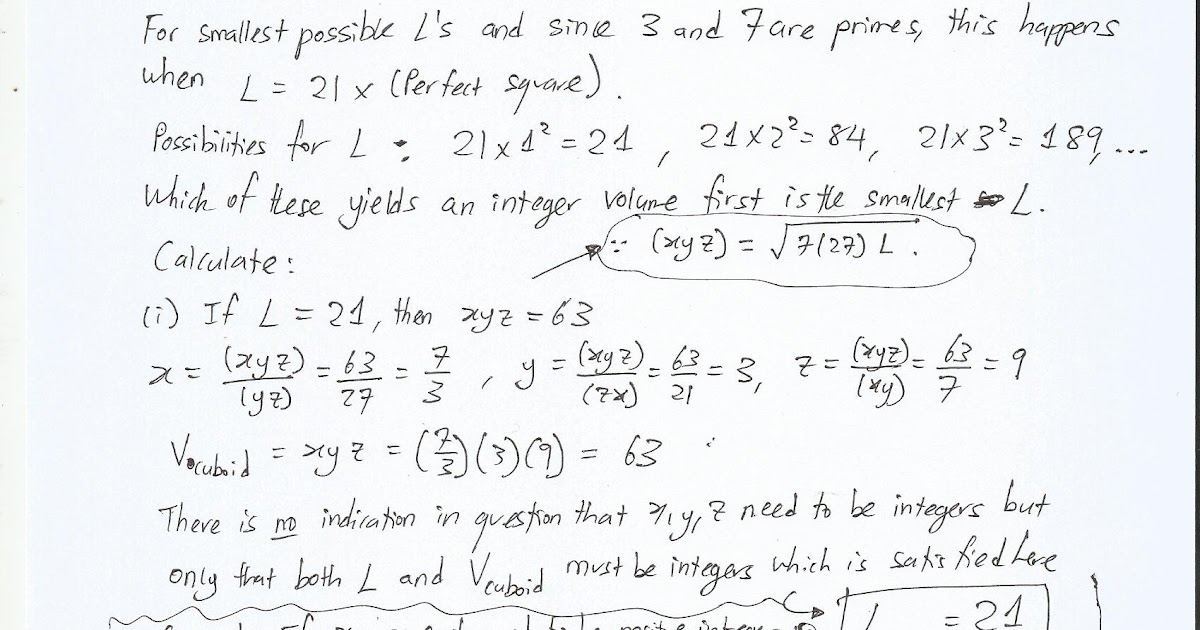 For smallest possible L's and since 3 and 7 are primes, this happens
when L = 21 x (Perfect square).
Possibilities for L : 21x1² = 21 , 21x2² = 84, 21x3² = 189, ...
Which of these yields an integer volume first is the smallest L.
Calculate: ∵ (xyz) = √7(27) L .
(i) If L = 21, then xyz = 63
x = (xyz)/(yz) = 63/27 = 7/3 , y = (xyz)/(zx) = 63/21 = 3, z = (xyz)/(xy) = 63/7 = 9
Vcuboid = xyz = (7/3)(3)(9) = 63
There is no indication in question that x,y,z need to be integers but
only that both L and Vcuboid must be integers which is satisfied here
= 21